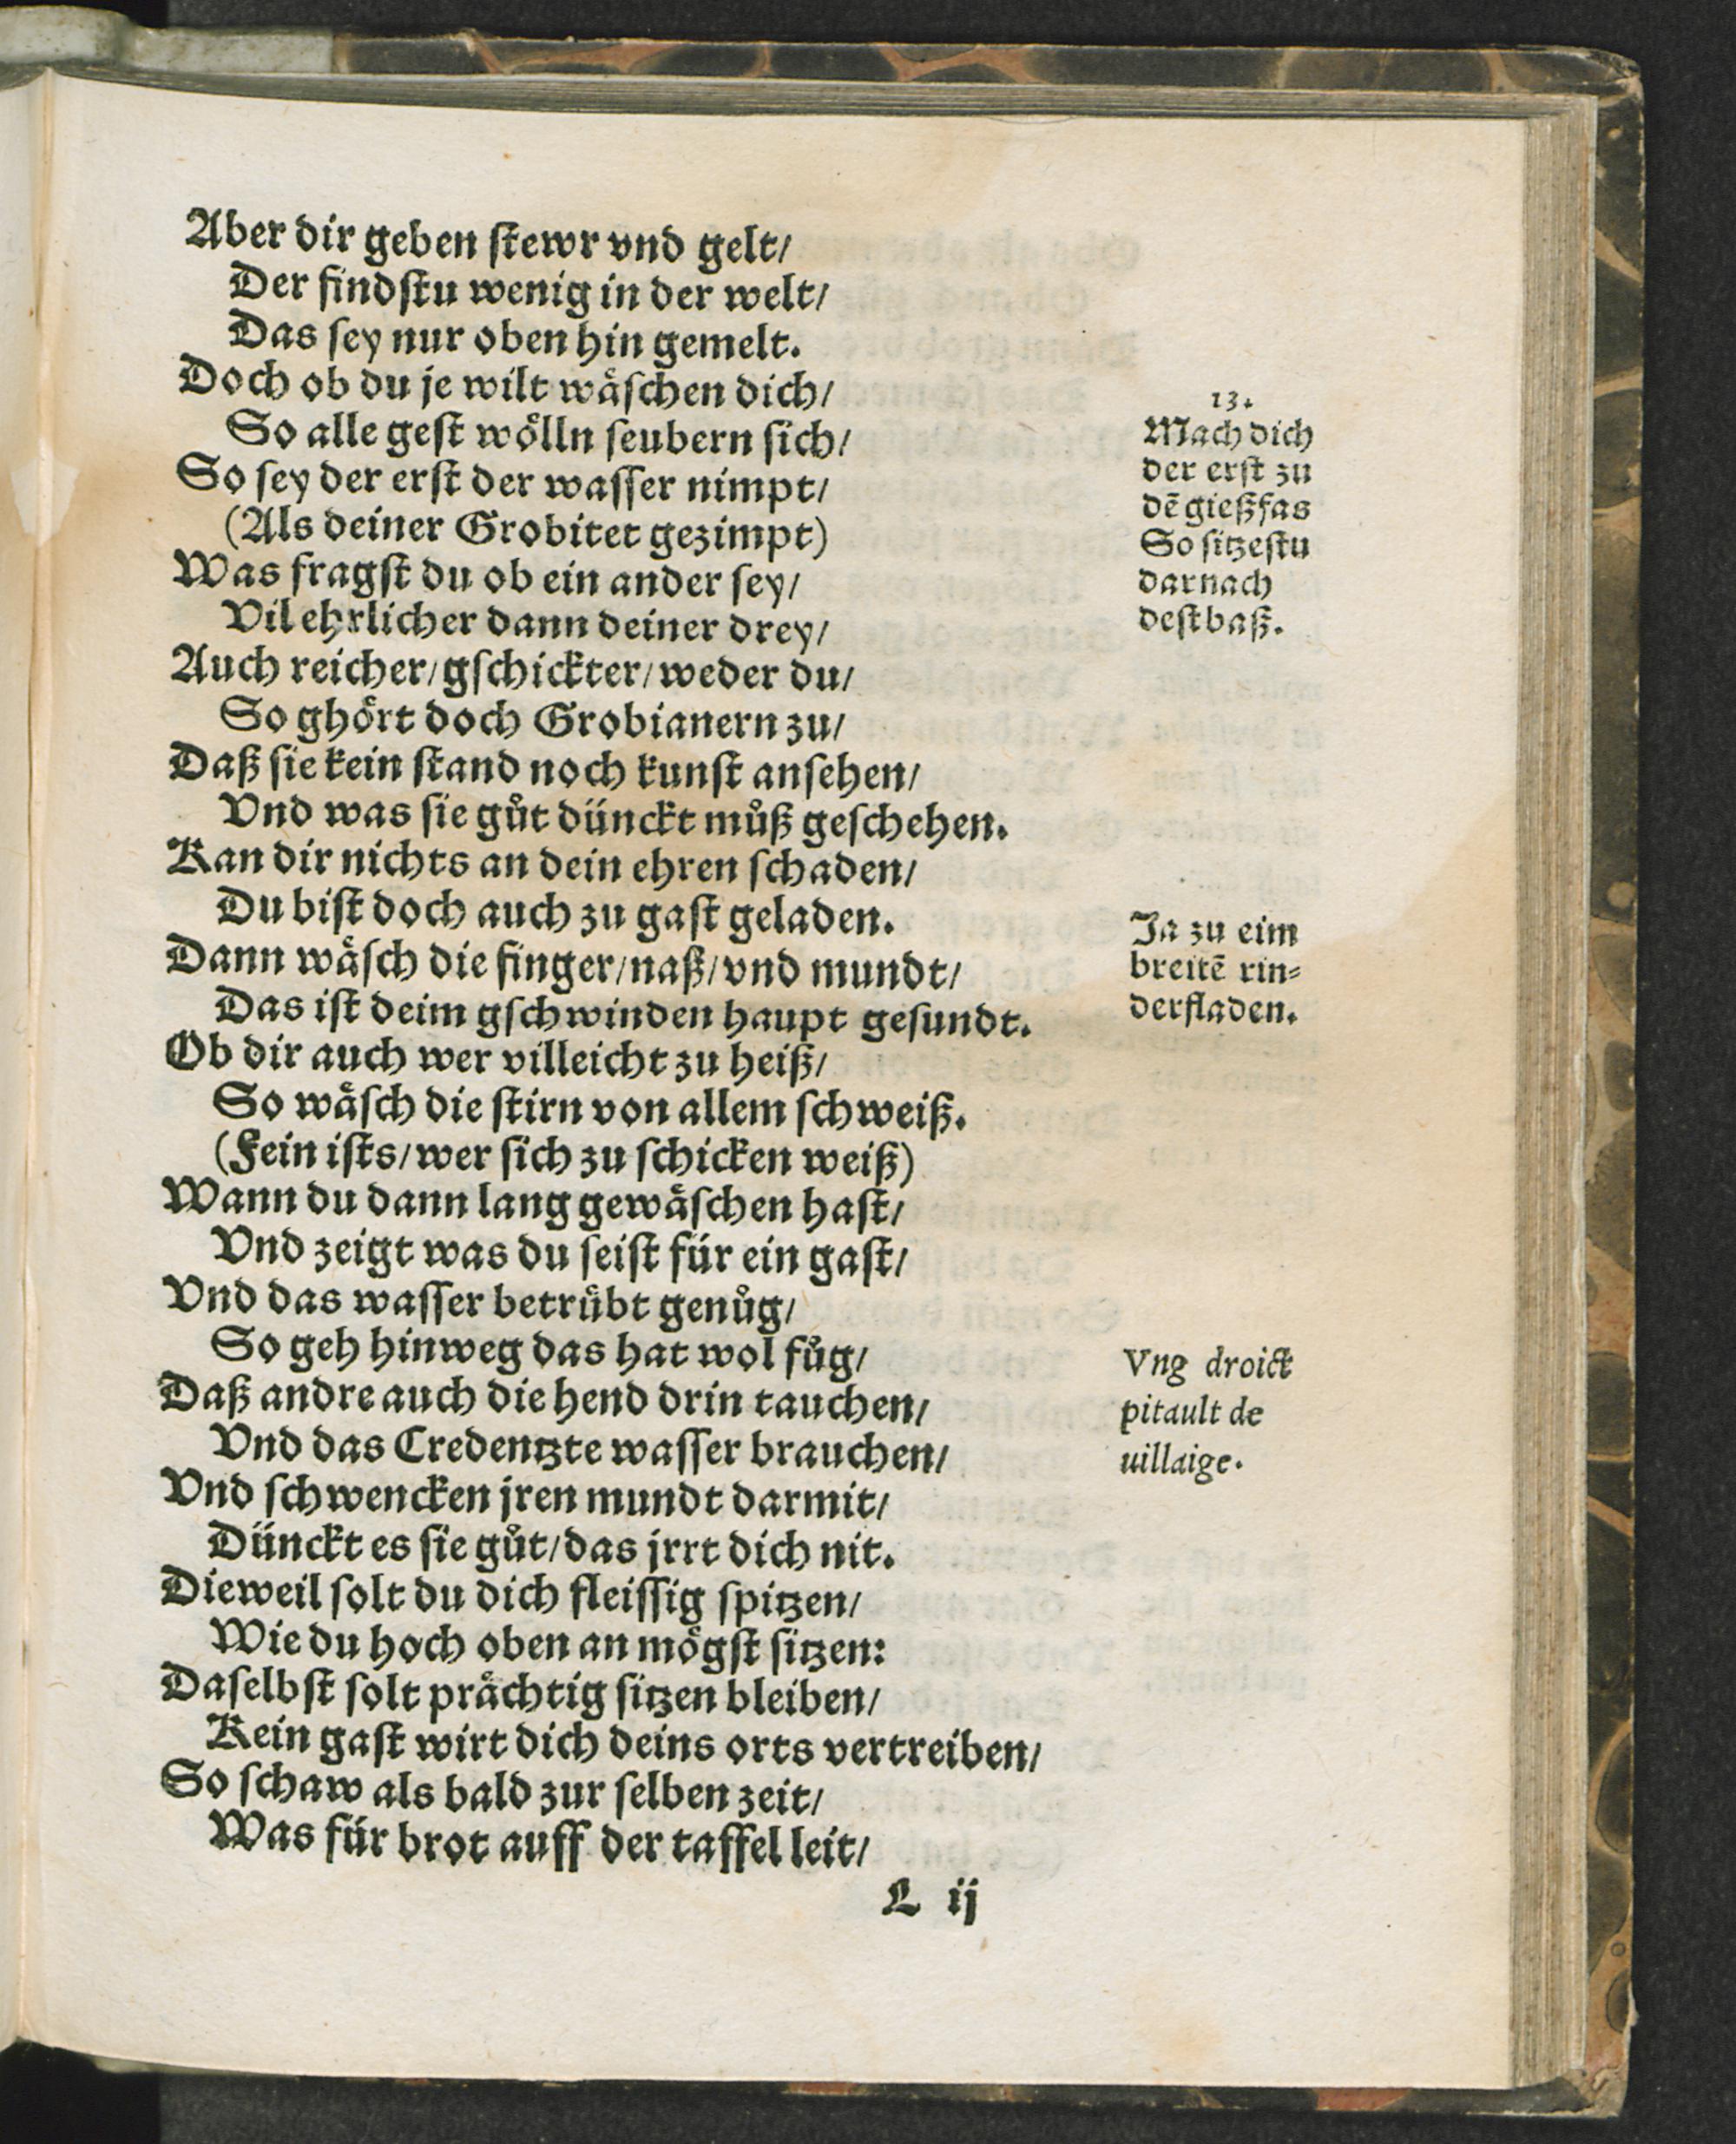 Aber dir geben ſtewr vnd gelt/
Der findſtu wenig in der welt/
Das ſey nur oben hin gemelt.
Doch ob du je wilt wåſchen dich/
So alle geſt wölln ſeubern ſich/
So ſey der erſt der waſſer nimpt/
(Als deiner Grobitet gezimpt)
Was fragſt du ob ein ander ſey/
Vil ehrlicher dann deiner drey/
Auch reicher/gſchickter/weder du/
So ghört doch Grobianern zu/
Daß ſie kein ſtand noch kunſt anſehen/
Vnd was ſie gůt dünckt můß geſchehen.
Kan dir nichts an dein ehren ſchaden/
Du biſt doch auch zu gaſt geladen.
Dann wåſch die finger/naß/vnd mundt/
Das iſt deim gſchwinden haupt geſundt.
Ob dir auch wer villeicht zu heiß/
So wåſch die ſtirn von allem ſchweiß.
(Fein iſts/wer ſich zu ſchicken weiß)
Wann du dann lang gewåſchen haſt/
Vnd zeigt was du ſeiſt für ein gaſt/
Vnd das waſſer betrübt genůg/
So geh hinweg das hat wol fůg/
Daß andre auch die hend drin tauchen/
Vnd das Credentzte waſſer brauchen/
Vnd ſchwencken jren mundt darmit/
Dünckt es ſie gůt/das jrrt dich nit.
Dieweil ſolt du dich fleiſſig ſpitzen/
Wie du hoch oben an mögſt ſitzen:
Daſelbſt ſolt pråchtig ſitzen bleiben/
Kein gaſt wirt dich deins orts vertreiben/
So ſchaw als bald zur ſelben zeit/
Was für brot auff der taffel leit/
L ij
13.
Mach dich
der erſt zu
dē gießfas
So ſitzeſtu
darnach
deſtbaß.
Ja zu eim
breitē rin⸗
derfladen.
Vng droict
pitault de
uillaige.